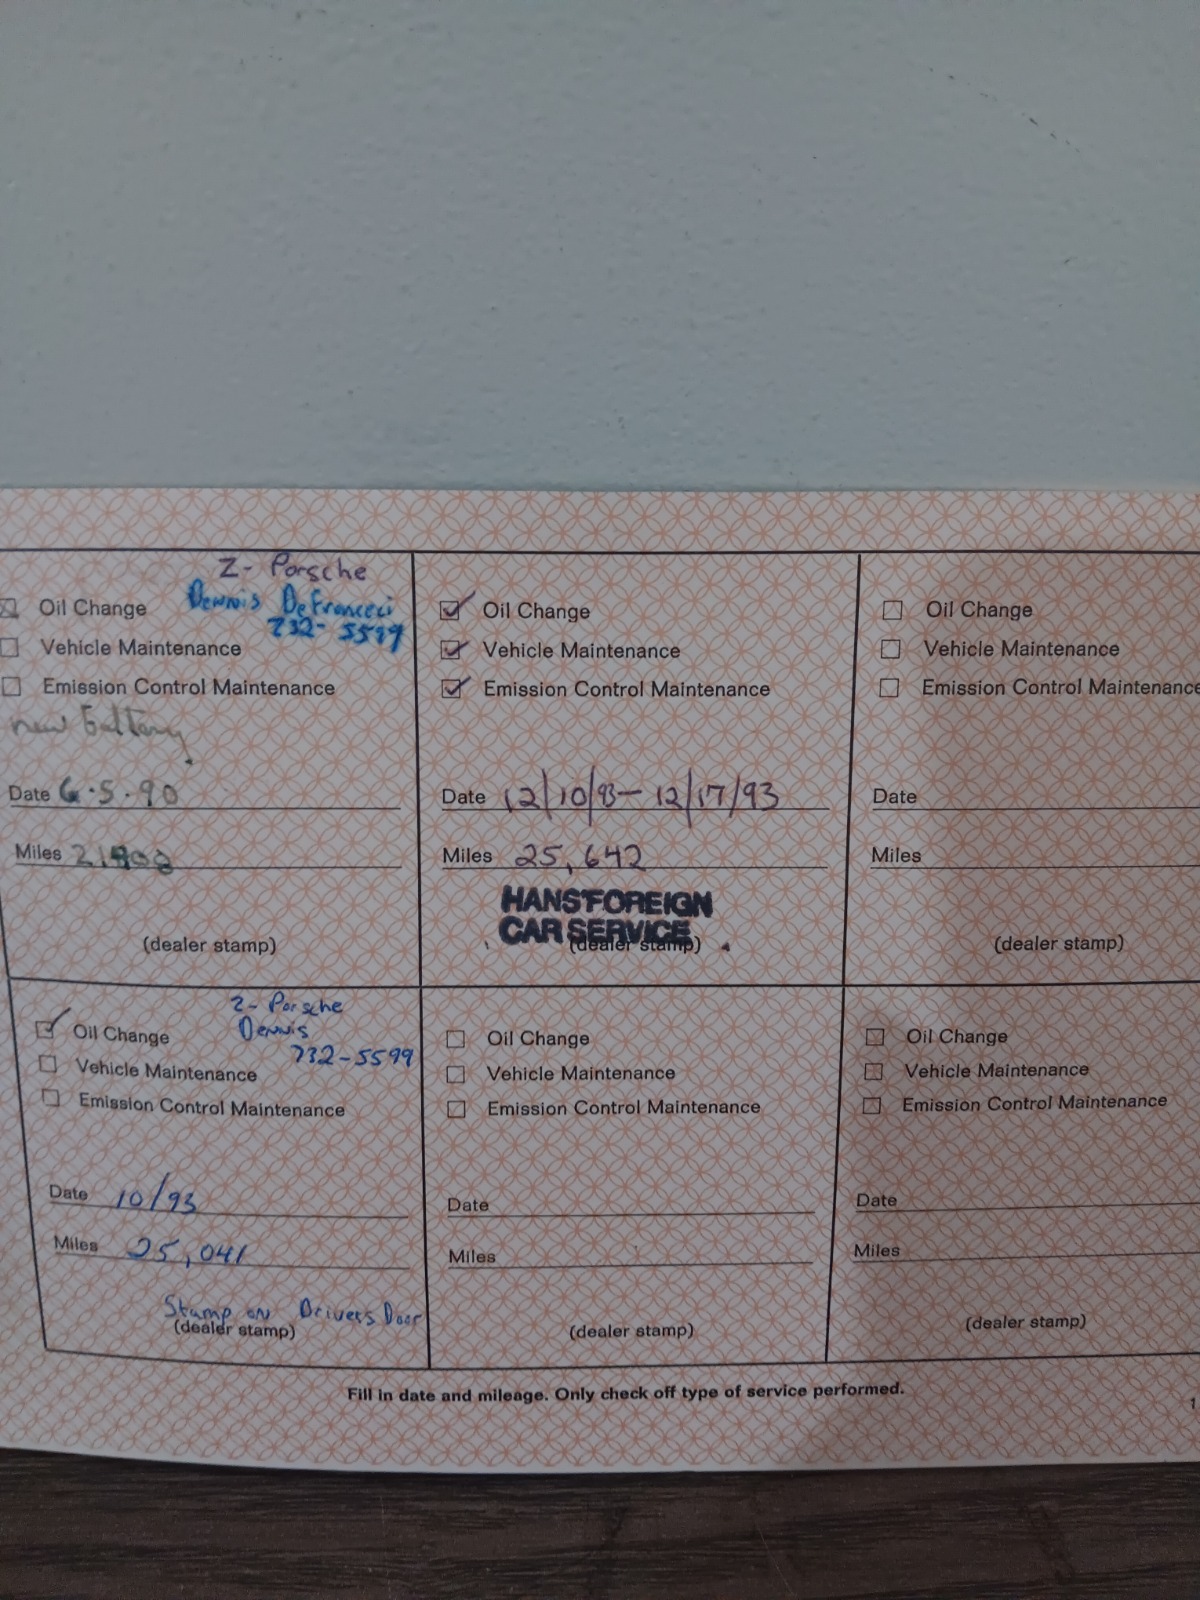 Z- Porsche
Oil Change
Dennis DeFrancesci
732-5599
Vehicle Maintenance
Emission Control Maintenance
new battery
Date 6.5.90
Miles
(dealer stamp)
Oil Change
Vehicle Maintenance
Emission Control Maintenance
Date 12/10/93- 12/17/93
Miles 25,642
HANS FOREIGN
CAR SERVICE
(dealer stamp)
Oil Change
Vehicle Maintenance
Emission Control Maintenance
Date
Miles
(dealer stamp)
Z- Porsche
Oil Change
Dennis
732-5599
Vehicle Maintenance
Emission Control Maintenance
Date 10/93
Miles 25,041
Stamp on Drivers Door
(dealer stamp)
Oil Change
Vehicle Maintenance
Emission Control Maintenance
Date
Miles
(dealer stamp)
Oil Change
Vehicle Maintenance
Emission Control Maintenance
Date
Miles
(dealer stamp)
Fill in date and mileage. Only check off type of service performed.
1